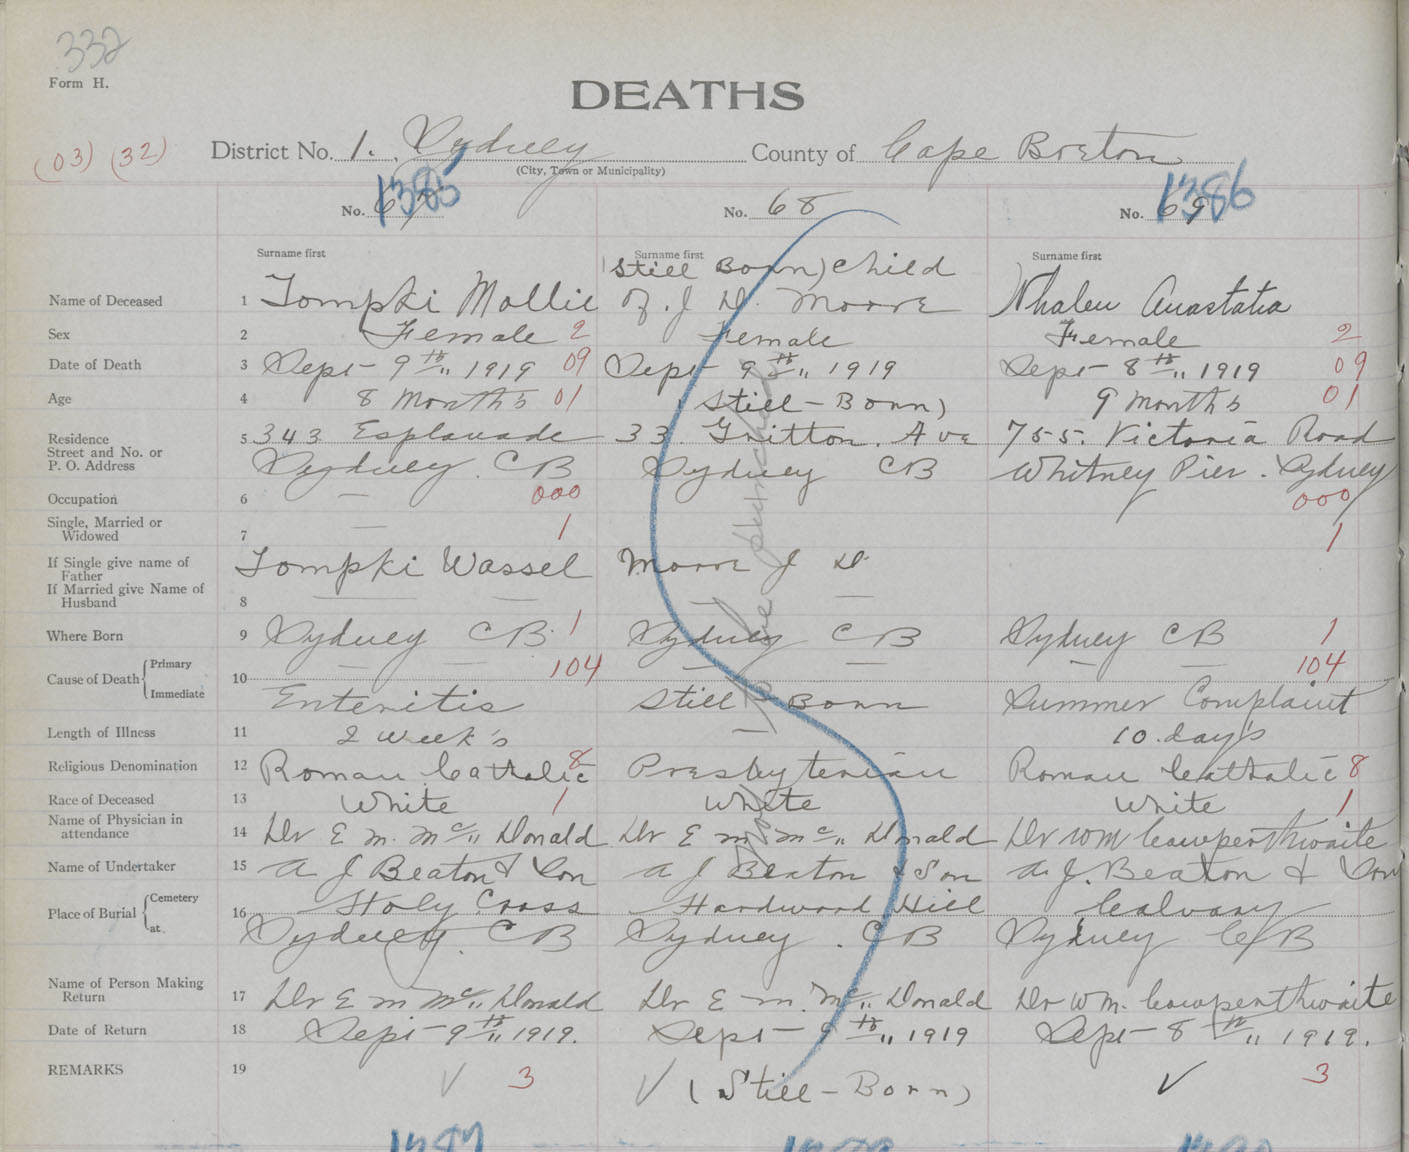 332
Form H.
DEATHS
(03) (32) District No. 1. Sydney County of Cape Breton
(City, Town or Municipality)
1385 1386
No. 67 No. 68 No. 69
Surname first Surname first Surname first
(Still Born) Child
Name of Deceased 1 Tompki Mollie of J D. Moore Whalen Anastatia
Sex 2 Female 2 Female Female 2
Date of Death 3 Sept - 9th 1919 09 Sept 9th 1919 Sept - 8th 1919 09
Age 4 8 Months 01 (Still-Born) 9 months 01
Residence
Street and No. or 5 343 Esplanade 33 Gritton. Ave 755. Victoria Road
P. O. Address Sydney. CB Sydney CB Whitney Pier. Sydney
Occupation 6 — 000 000
Single, Married or
Widowed 7 — 1 1
If Single give name of
Father Tompki Wassel Moore J D
If Married give Name of
Husband 8 — — — —
Where Born 9 Sydney CB. 1 Sydney CB Sydney CB 1
Cause of Death Primary 10 — — 104 — — — — 104
Immediate Enteritis Still Born Summer Complaint
Length of Illness 11 2 week's — 10 day's
Religious Denomination 12 Roman Catholic 8 Presbyterian Roman Catholic 8
Race of Deceased 13 White 1 White White 1
Name of Physician in
attendance 14 Dr E M. Mc Donald Dr E M Mc Donald Dr Wm Cowperthwaite
Name of Undertaker 15 A J Beaton & Son A J Beaton & Son A. J. Beaton & Son
Place of Burial Cemetery 16 Holy Cross Hardwood Hill Calvary
at. Sydney. CB Sydney. CB Sydney C/B
Name of Person Making
Return 17 Dr E M Mc Donald Dr E M. Mc Donald Dr Wm. Cowperthwaite
Date of Return 18 Sept - 9th 1919. Sept - 9th 1919 Sept - 8th 1919.
REMARKS 19 √ 3 √ (Still-Born) √ 3
Not to be punched
1387